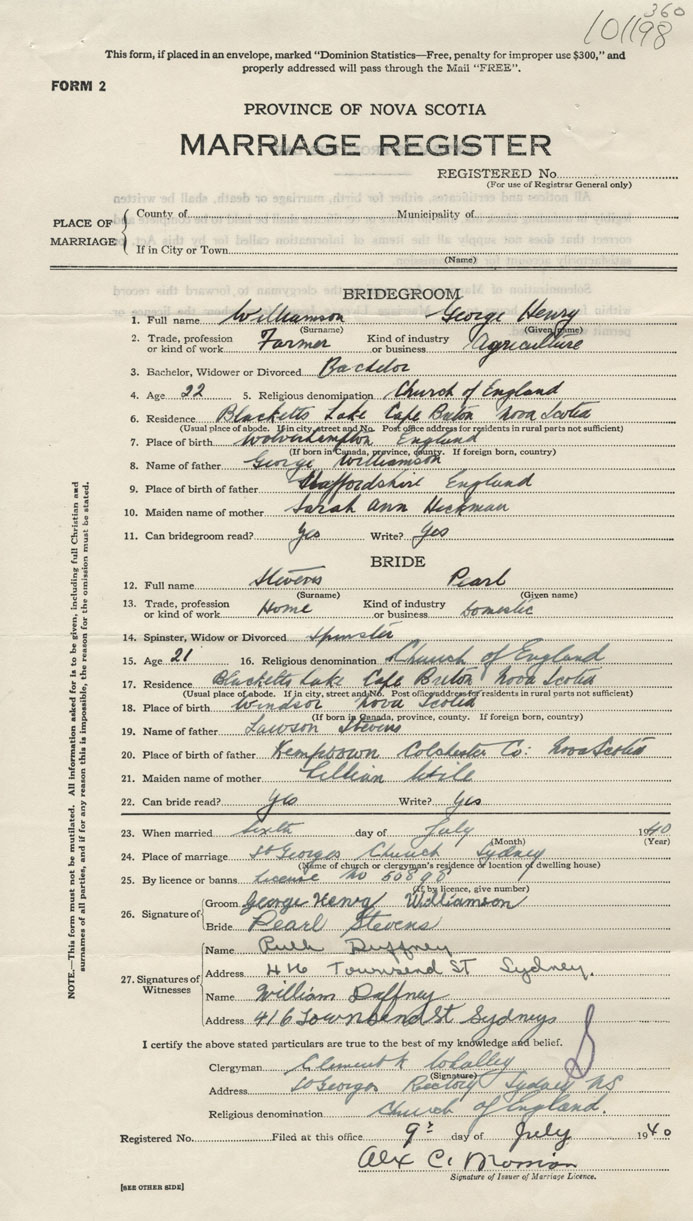 360
101198
This form, if placed in an envelope, marked "Dominion Statistics—Free, penalty for improper use $300," and
properly addressed will pass through the Mail "FREE".
FORM 2
PROVINCE OF NOVA SCOTIA
MARRIAGE REGISTER
REGISTERED No.
(For use of Registrar General only)
PLACE OF MARRIAGE
County of Municipality of
If in City or Town
(Name)
BRIDEGROOM
1. Full name Williamson George Henry
(Surname) (Given name)
2. Trade, profession or kind of work Farmer Kind of industry or business Agriculture
3. Bachelor, Widower or Divorced Bachelor
4. Age 22 5. Religious denomination Church of England
6. Residence Blacketts Lake Cape Breton Nova Scotia
(Usual place of abode. If in city, street and No. Post office address for residents in rural parts not sufficient)
7. Place of birth Wolverhampton England
(If born in Canada, province, county. If foreign born, country)
8. Name of father George Williamson
9. Place of birth of father Staffordshire England
10. Maiden name of mother Sarah Ann Hickman
11. Can bridegroom read? Yes Write? Yes
BRIDE
12. Full name Stevens Pearl
(Surname) (Given name)
13. Trade, profession or kind of work Home Kind of industry or business Domestic
14. Spinster, Widow or Divorced Spinster
15. Age 21 16. Religious denomination Church of England
17. Residence Blacketts Lake Cape Breton Nova Scotia
(Usual place of abode. If in city, street and No. Post office address for residents in rural parts not sufficient)
18. Place of birth Windsor Nova Scotia
(If born in Canada, province, county. If foreign born, country)
19. Name of father Lawson Stevens
20. Place of birth of father Kemptown Colchester Co: Nova Scotia
21. Maiden name of mother Lillian
22. Can bride read? Yes Write? Yes
23. When married Sixth day of July 1940
(Month) (Year)
24. Place of marriage St Georges Church Sydney
(Name of church or clergyman's residence or location of dwelling house)
25. By licence or banns License No
(If by licence, give number)
26. Signature of
Groom George Henry Williamson
Bride Pearl Stevens
27. Signatures of Witnesses
Name Ruth Duffney
Address 416 Townsend St Sydney.
Name William Duffney
Address 416 Townsend St Sydney
I certify the above stated particulars are true to the best of my knowledge and belief.
Clergyman Clement Whalley
(Signature)
Address St Georges Rectory Sydney NS
Religious denomination Church of England.
Registered No. Filed at this office 9th day of July 1940
Alex C.
Signature of Issuer of Marriage Licence.
[SEE OTHER SIDE]
NOTE.—This form must not be mutilated. All information asked for is to be given, including full Christian and
surnames of all parties, and if for any reason this is impossible, the reason for the omission must be stated.